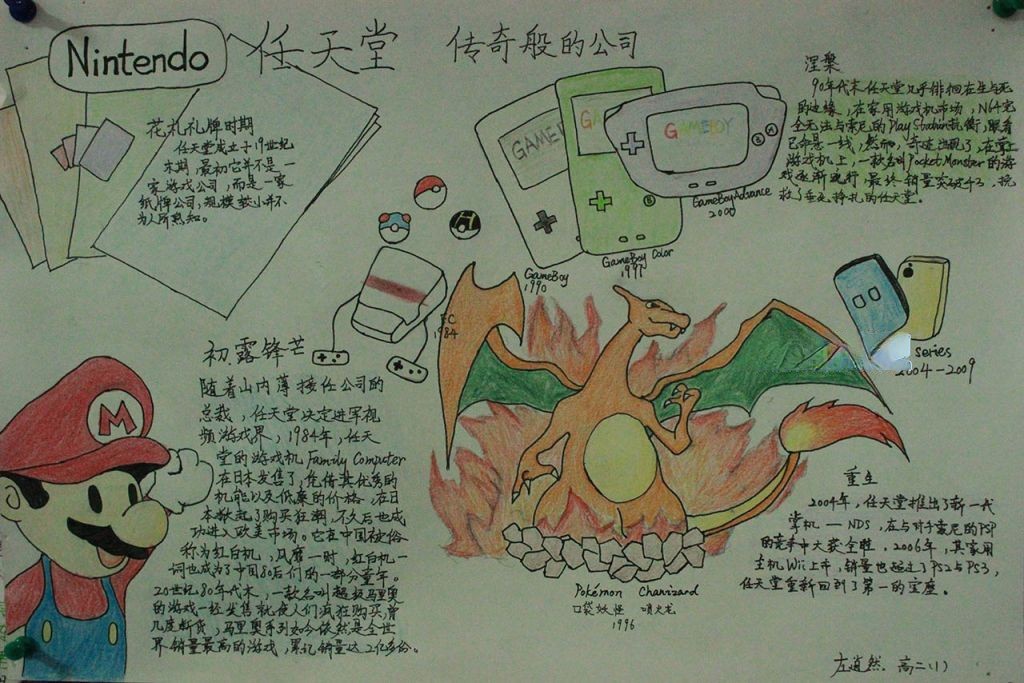 Nintendo
任天堂 传奇般的公司
花札礼牌时期
任天堂成立于19世纪
末期,最初它并不是一
家游戏公司,而是一家
纸牌公司,规模较小并不
为人所熟知。
GAMEBOY
GameBoy
1990
GameBoy Color
1997
GAMEBOY
GameBoyAdvance
2000
涅槃
90年代末任天堂几乎徘徊在生与死
的边缘,在家用游戏机市场,N64完
全无法与索尼的PlayStation抗衡,眼看
已命悬一线,然而,奇迹出现了,在掌上
游戏机上,一款名叫Pocket Monster的游
戏逐渐流行,最终销量突破,挽
救了垂死挣扎的任天堂。
FC
1984
series
2004-2009
初露锋芒
随着山内薄接任公司的
总裁,任天堂决定进军视
频游戏界,1984年,任天
堂的游戏机Family Computer
在日本发售了,凭借其优秀的
机能以及低廉的价格,在日
本掀起了购买狂潮,不久后也成
功进入欧美市场。它在中国被俗
称为红白机,风靡一时,红白机一
词也成为了中国80后们的一部分童年。
20世纪80年代末,一款名叫超级马里奥
的游戏一经发售就使人们疯狂购买,曾
几度断货,马里奥系列如今依然是全世
界销量最高的游戏,累记销量达2亿多份。
M
Pokémon Charizard
口袋妖怪 喷火龙
1996
重生
2004年,任天堂推出了新一代
掌机——NDS,在与对手索尼的PSP
的竞争中大获全胜,2006年,其家用
主机Wii上市,销量也超过了PS2与PS3,
任天堂重新回到了第一的宝座。
左逍然. 高二(1)